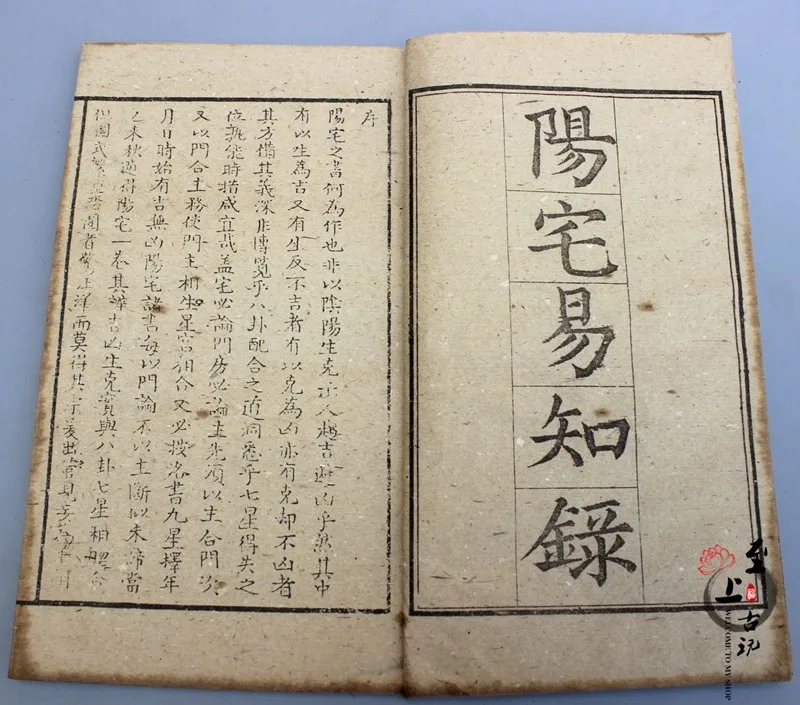 陽宅易知錄
序
陽宅之書何為作也非以陰陽生克示人趨吉避凶乎然其中
有以生為吉又有生反不吉者有以克為凶亦有克却不凶者
其方備其義深非博覽乎八卦配合之道洞悉乎七星得失之
位孰能時措咸宜哉蓋宅必論門房必論主先須以主合門次
又以門合主務使門主相生星宮相合又必按洛書九星擇年
月日時始有吉無凶陽宅諸書每以門論不以主斷似未諦當
乙未秋適得陽宅一卷其辨吉凶生克實與八卦七星相脗合
但圖式繁重恐閱者驚汪洋而莫得其宗爰出管見
至上古玩
WELCOME TO MY SHOP